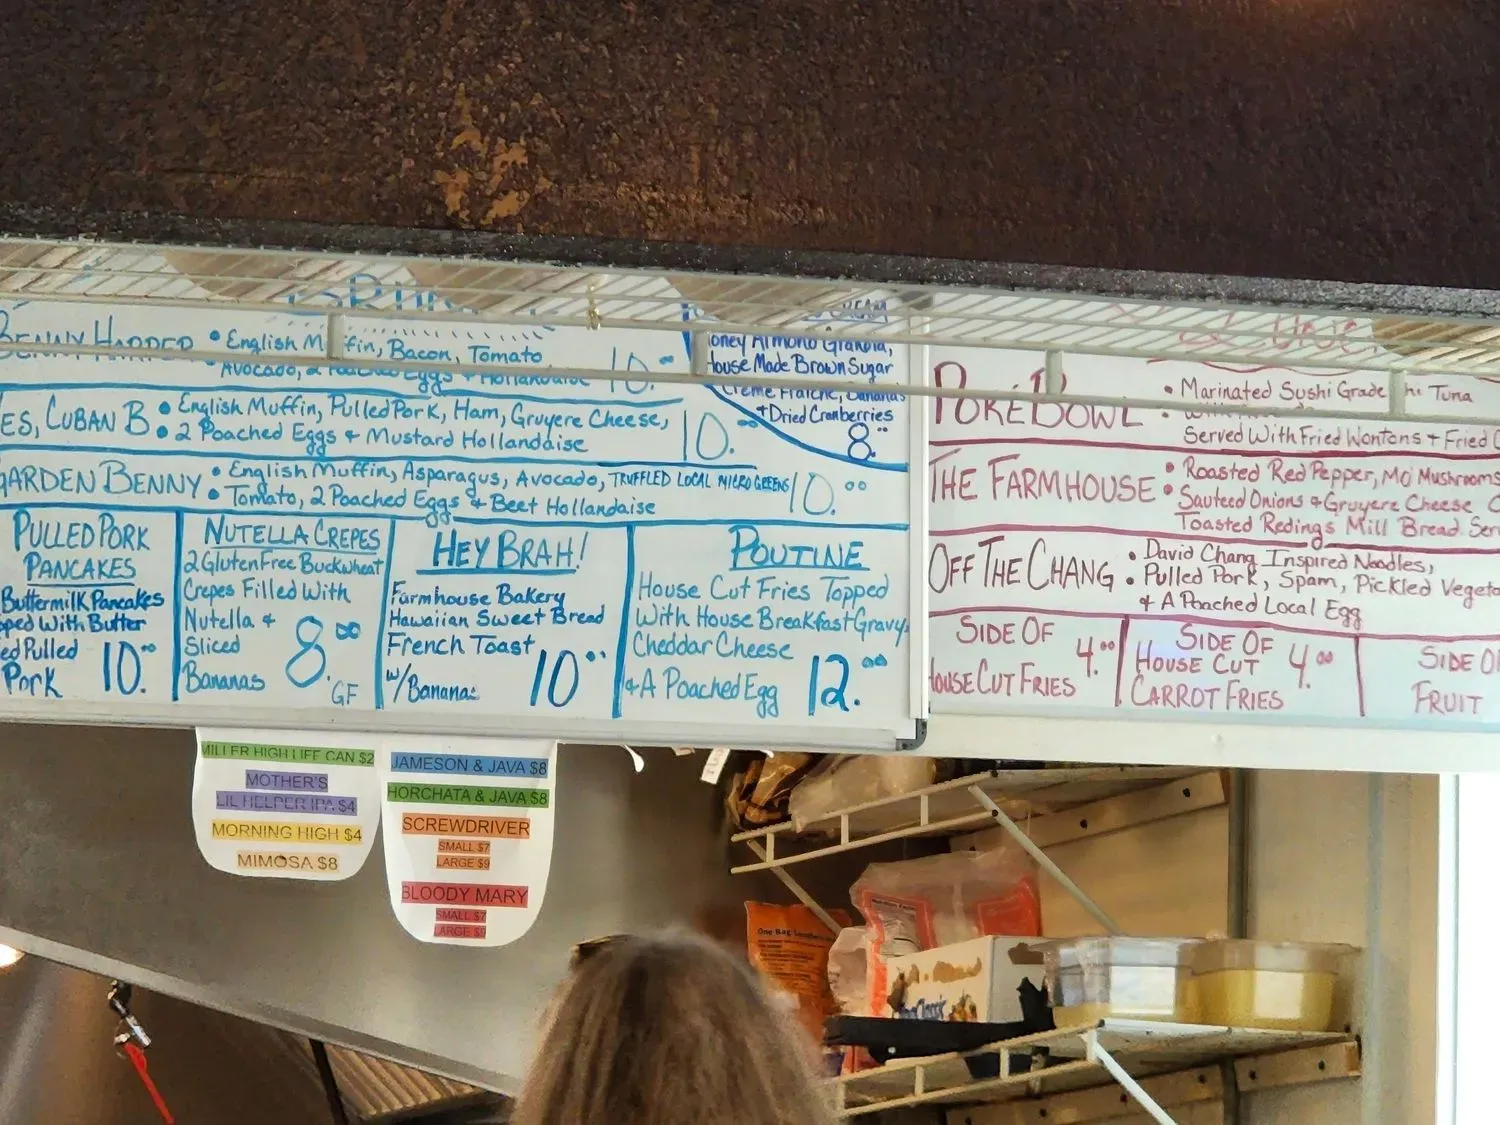 BRUNCH
BENNY HARPER
• English Muffin, Bacon, Tomato
Avocado, 2 Poached Eggs + Hollandaise
10.00
ES, CUBAN B
• English Muffin, Pulled Pork, Ham, Gruyere Cheese,
• 2 Poached Eggs + Mustard Hollandaise
10.00
GARDEN BENNY
• English Muffin, Asparagus, Avocado, TRUFFLED LOCAL MICRO GREENS
• Tomato, 2 Poached Eggs & Beet Hollandaise
10.00
CREAM
Honey Almond Granola,
House Made Brown Sugar
Creme Fraiche, Bananas
+ Dried Cranberries
8.00
PULLED PORK
PANCAKES
Buttermilk Pancakes
pped With Butter
ed Pulled
Pork
10.00
NUTELLA CREPES
2 Gluten Free Buckwheat
Crepes Filled With
Nutella +
Sliced
Bananas
8.00
GF
HEY BRAH!
Farmhouse Bakery
Hawaiian Sweet Bread
French Toast
w/Bananas
10.00
POUTINE
House Cut Fries Topped
With House Breakfast Gravy,
Cheddar Cheese
+ A Poached Egg
12.00
LUNCH
POKE BOWL
• Marinated Sushi Grade Ahi Tuna
Served With Fried Wontons + Fried
THE FARMHOUSE
• Roasted Red Pepper, Mo Mushrooms
• Sauteed Onions & Gruyere Cheese
Toasted Redings Mill Bread. Ser
OFF THE CHANG
• David Chang Inspired Noodles,
• Pulled Pork, Spam, Pickled Vegeta
& A Poached Local Egg
SIDE OF
HOUSE CUT FRIES
4.00
SIDE OF
HOUSE CUT
CARROT FRIES
4.00
SIDE OF
FRUIT
MILLER HIGH LIFE CAN $2
MOTHER'S
LIL HELPER IPA $4
MORNING HIGH $4
MIMOSA $8
JAMESON & JAVA $8
HORCHATA & JAVA $8
SCREWDRIVER
SMALL $7
LARGE $9
BLOODY MARY
SMALL $7
LARGE $9
One Bag
Classic